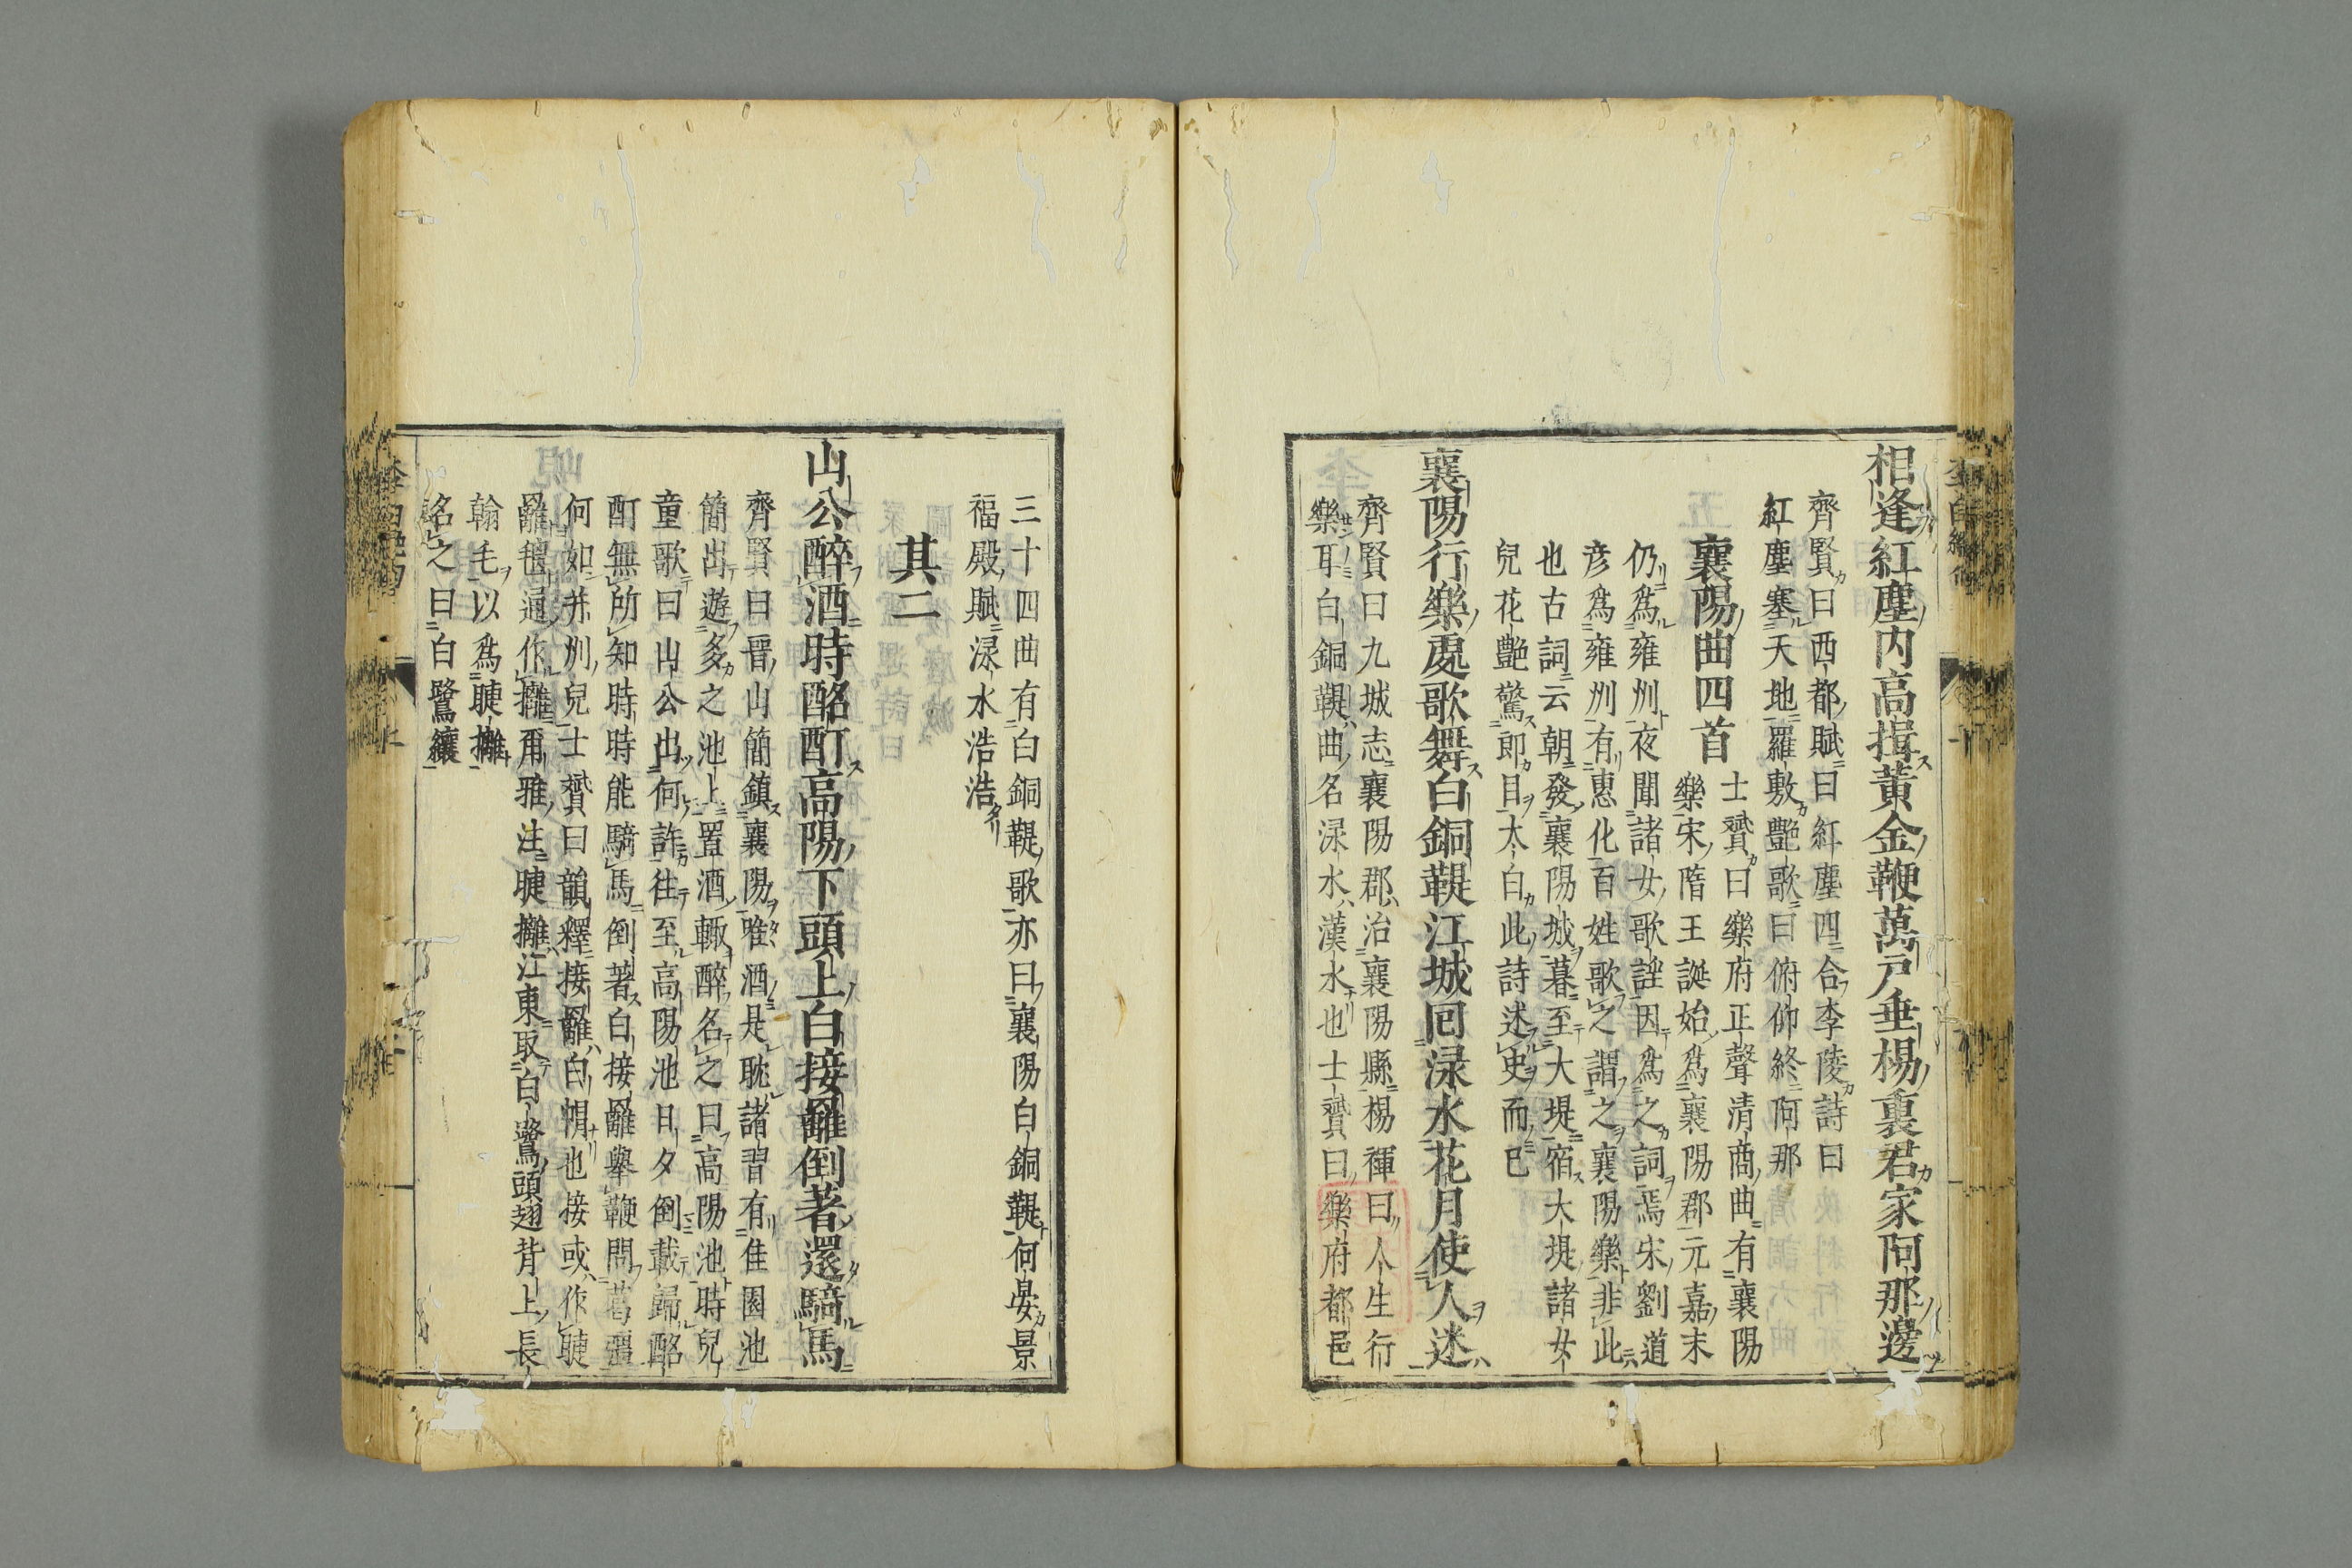 相逢紅塵内高揖黃金鞭萬戸垂楊裏君家阿那邊
齊賢曰西都賦曰紅塵四合李陵詩曰
紅塵塞天地羅敷艷歌曰俯仰終阿那
襄陽曲四首
士贇曰樂府正聲清商曲有襄陽
樂宋隋王誕始爲襄陽郡元嘉末
仍爲雍州夜聞諸女歌謡因爲之詞焉宋劉道
彦爲雍州有惠化百姓歌之謂之襄陽樂非此
也古詞云朝發襄陽城暮至大堤宿大堤諸女
兒花艷驚郎目太白此詩述史而已
襄陽行樂處歌舞白銅鞮江城回渌水花月使人迷
齊賢曰九城志襄陽郡治襄陽縣楊禈曰人生行
樂耳白銅鞮曲名渌水漢水也士贇曰樂府都邑
三十四曲有白銅鞮歌亦曰襄陽白銅鞮何晏景
福殿賦渌水浩浩
其二
山公醉酒時酩酊高陽下頭上白接䍦倒著還騎馬
齊賢曰晋山簡鎮襄陽唯酒是耽諸習有佳園池
簡出遊多之池上置酒輒醉名之曰高陽池時兒
童歌曰山公出何許往至高陽池日夕倒載歸酩
酊無所知時時能騎馬倒著白接䍦擧鞭問葛彊
何如并州兒士贇曰韻釋接䍦白帽也接或作䀹
䍦氊通作㩥爾雅注䀹㩥江東取白鷺頭翅背上長
翰毛以爲䀹㩥
名之曰白鷺纕